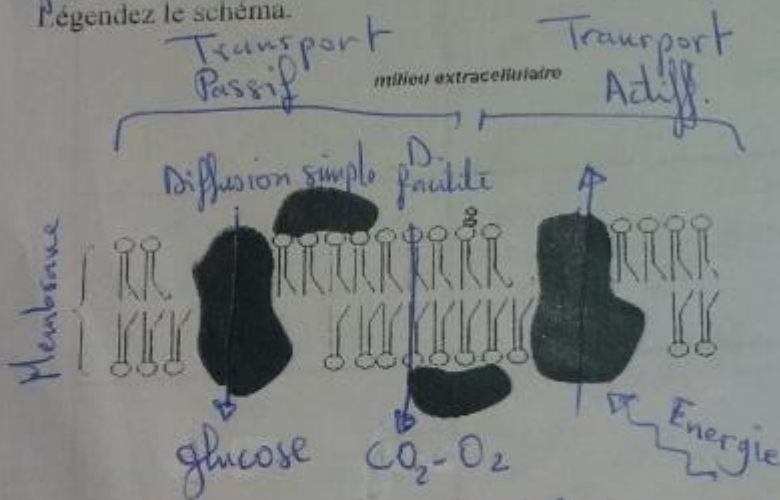 Légendez le schéma.
Transport Passif
milieu extracellulaire
Transport Actiff.
Diffusion simple
D. facilité
Membrane
glucose
CO₂-O₂
Energie